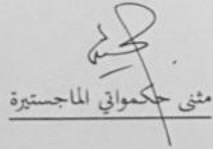 مثنى حكمواتي الماجستيرة